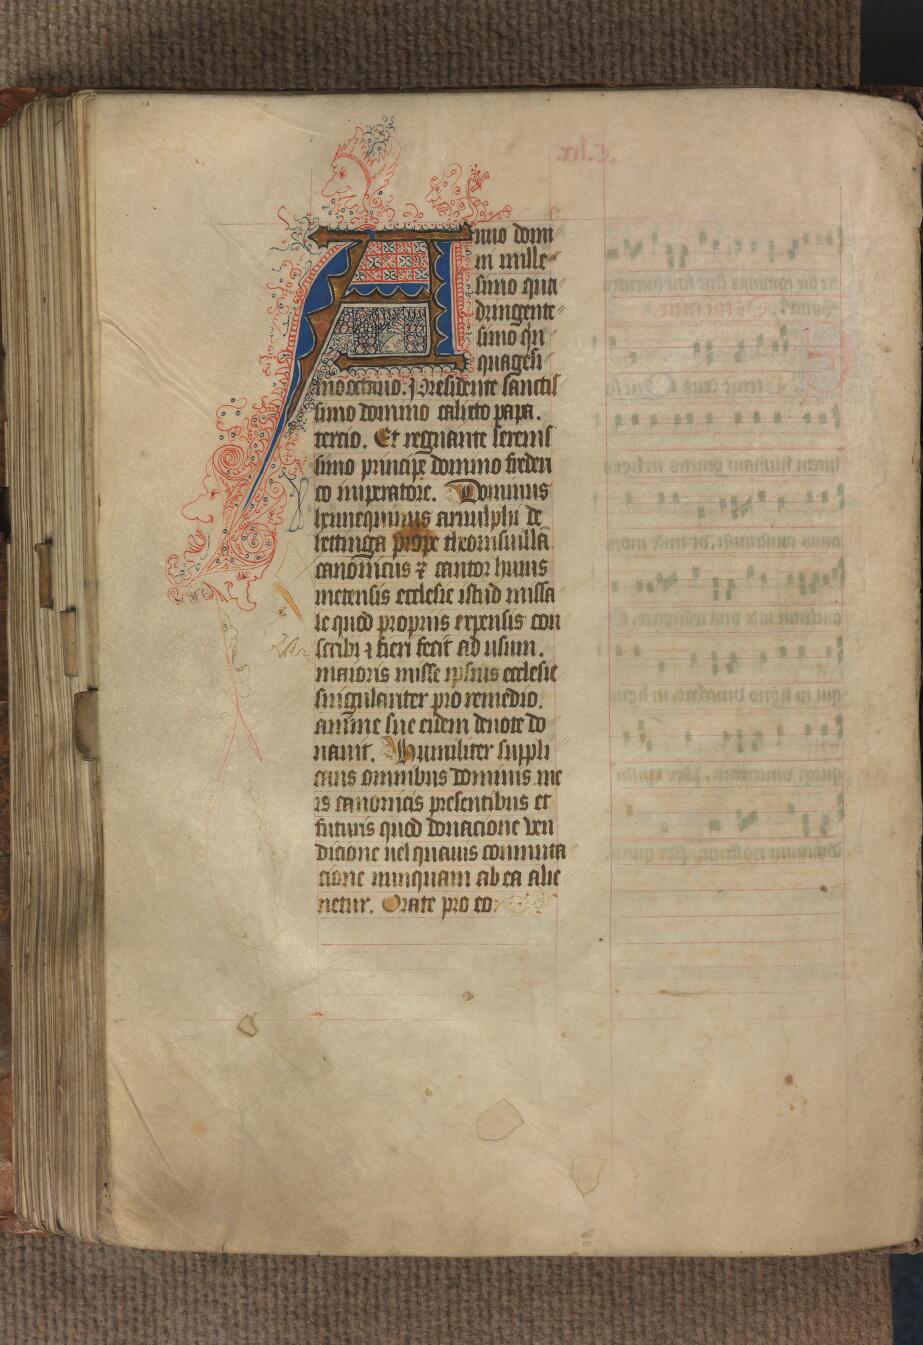 Anno domi
ni mille
simo qua
dringente
simo qn
quagesi
mo octauo. Presidente sanctis
simo domino calixto papa.
tercio. Et regnante serenis
simo principe domino frederi
co imperatore. Dominus
hennequinus arnulphi de
lettinga prope theonisuillã
canonicus ⁊ cantor huius
metensis ecclesie istud missa
le quod propriis expensis con
scribi ⁊ fieri fecit ad usum.
maioris misse ipsius ecclesie
singulariter pro remedio.
anime sue eidem deuote do
nauit. Humiliter suppli
cans omnibus dominis me
is canonicis presentibus et
futuris quod donacione ven
dicione uel quauis commuta
cione nunquam ab ea alie
netur. Orate pro eo.